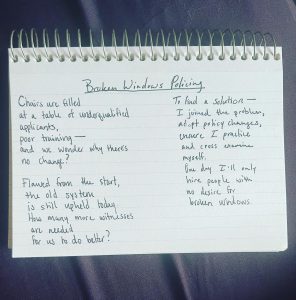 Broken Windows Policing
Chairs are filled
at a table of underqualified
applicants,
poor training —
and we wonder why there's
no change?
Flawed from the start,
the old system
is still upheld today
How many more witnesses
are needed
for us to do better?
To find a solution —
I joined the problem,
adopt policy changes,
ensure I practice
and cross examine
myself.
One day I'll only
hire people with
no desire for
broken windows.